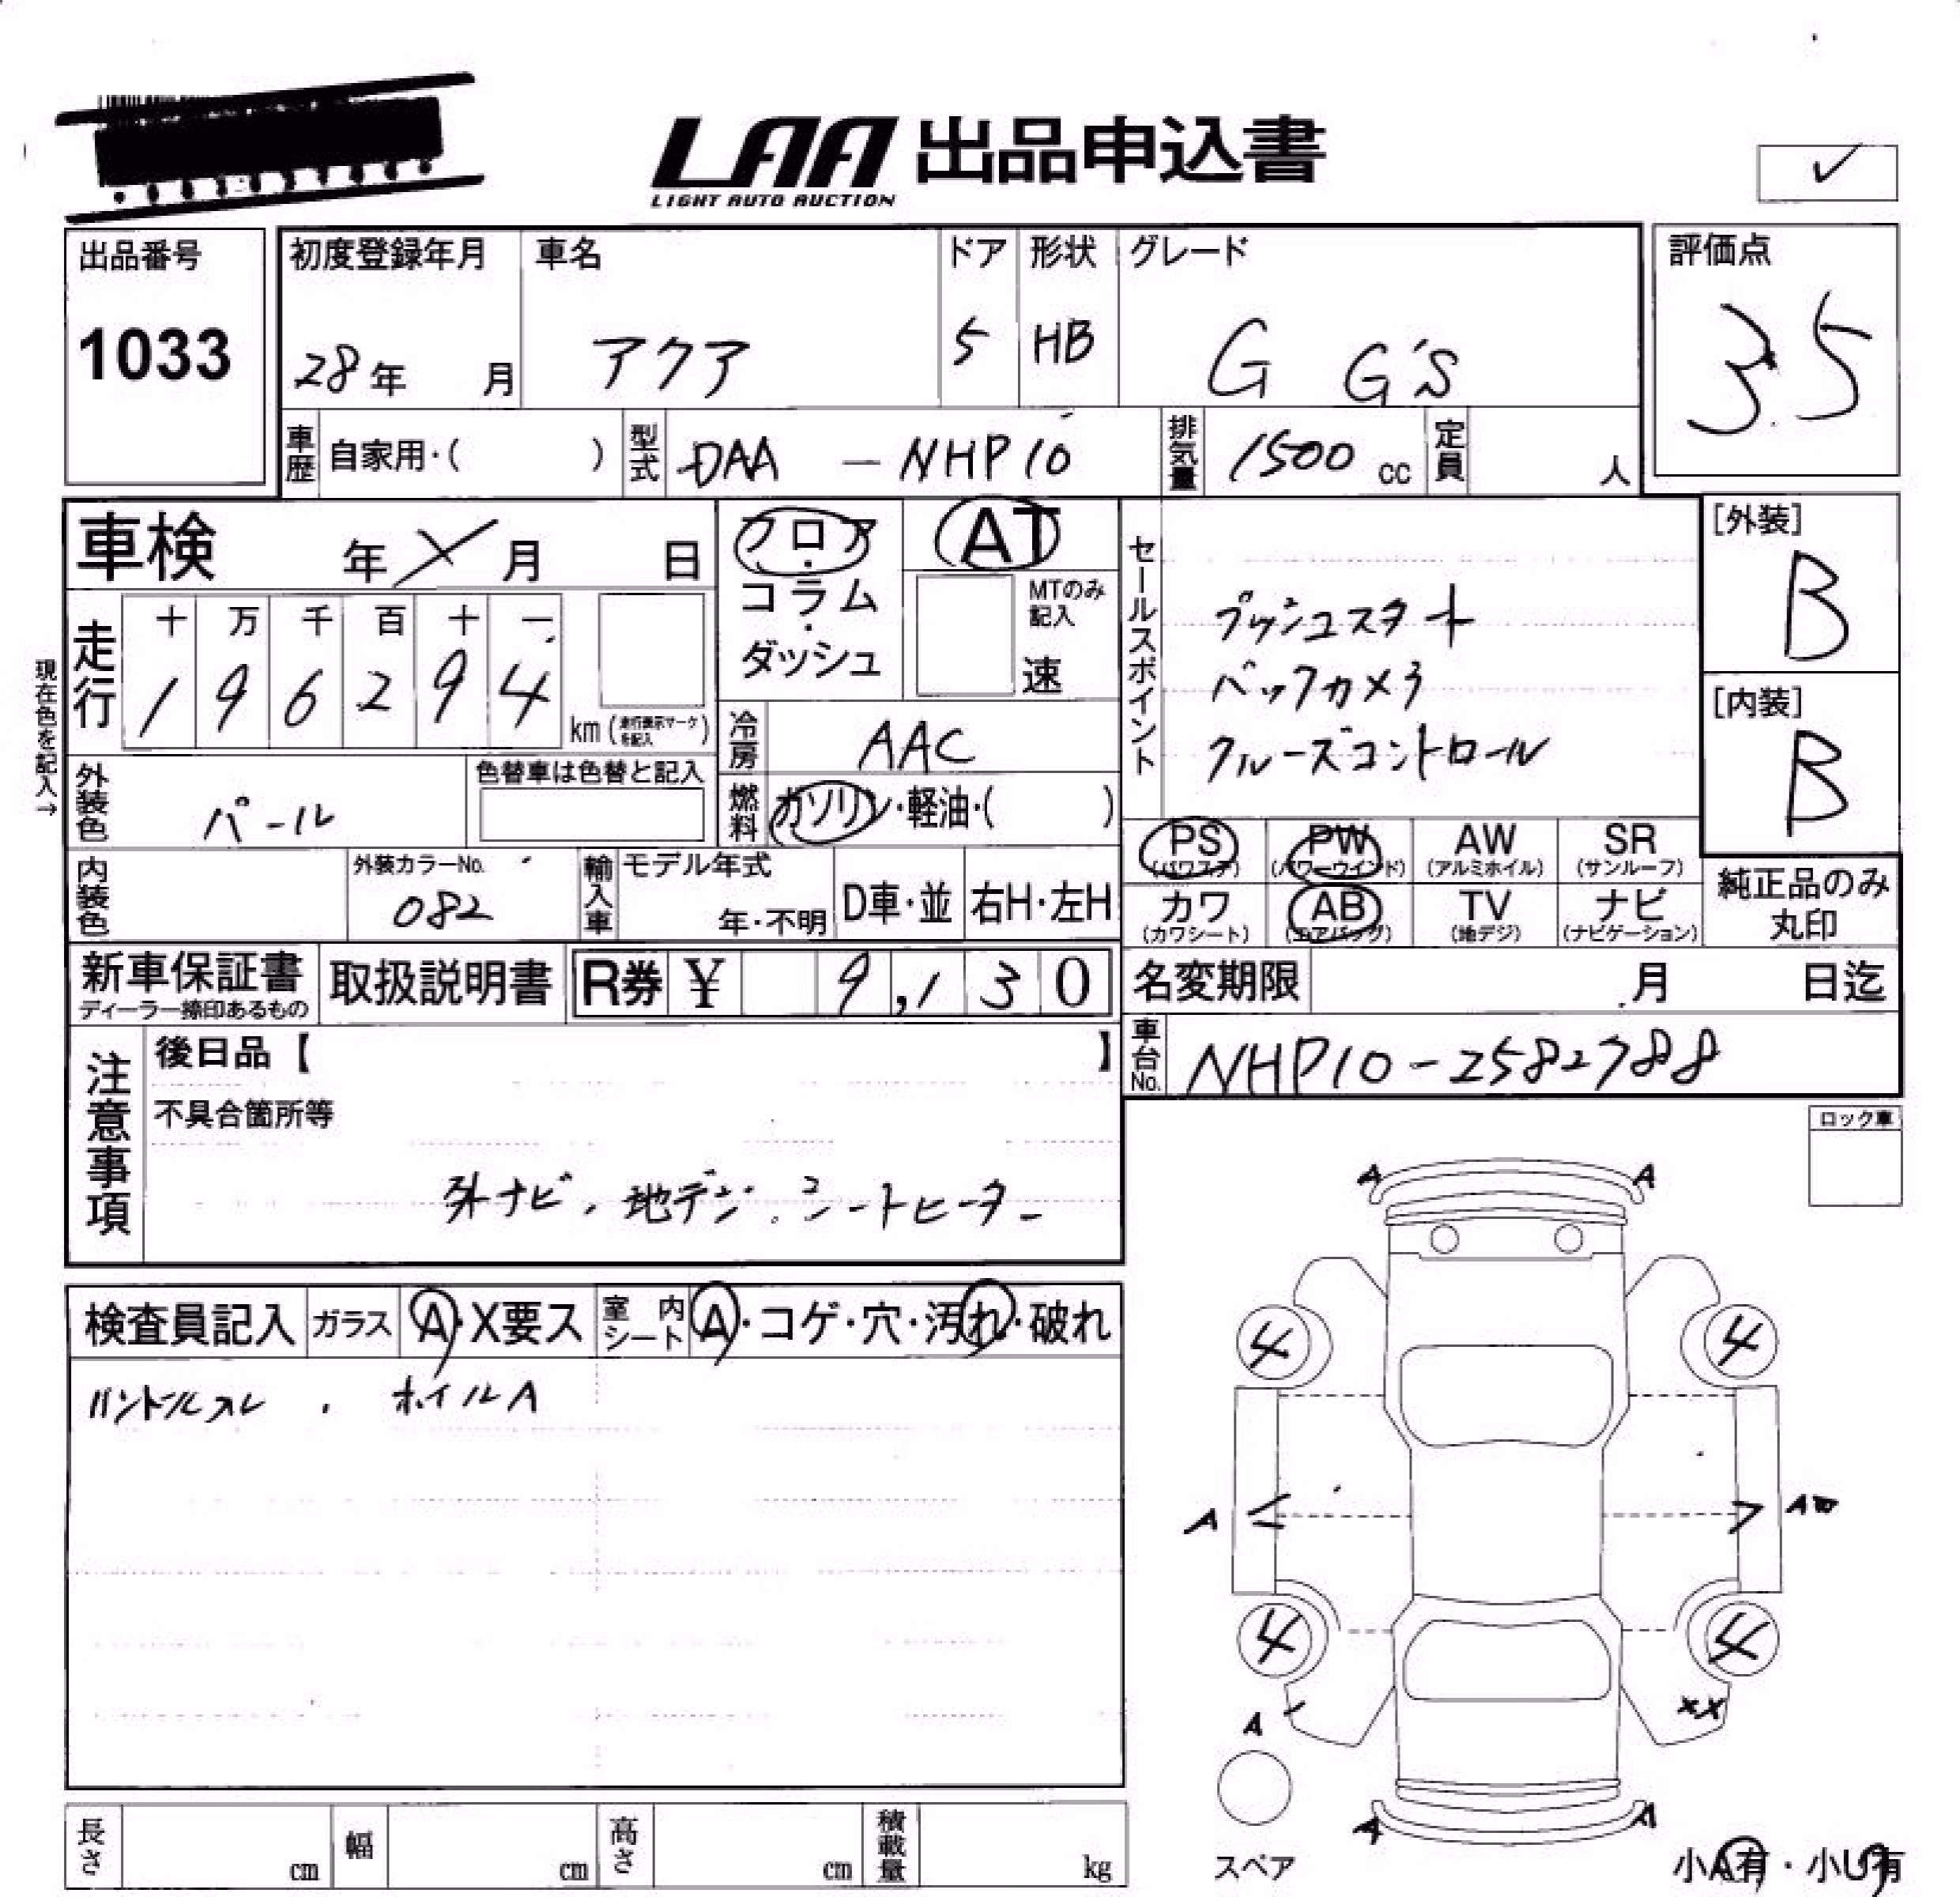 LAA 出品申込書
LIGHT AUTO AUCTION
✓
出品番号
1033
初度登録年月
28年 月
車名
アクア
ドア
5
形状
HB
グレード
G G's
評価点
3.5
車歴 自家用・( )
型式 DAA - NHP10
排気量 1500 cc
定員 人
車検 年 × 月 日
フロア・コラム・ダッシュ
AT
MTのみ記入
速
現在色を記入→
走行
十 万 千 百 十 一
1 9 6 2 9 4
km (走行表示マークを記入)
冷房 AAC
外装色 パール
色替車は色替と記入
燃料 ガソリン・軽油・( )
内装色
外装カラーNo.
082
輸入車 モデル年式
年・不明
D車・並
右H・左H
セールスポイント
プッシュスタート
バックカメラ
クルーズコントロール
[外装]
B
[内装]
B
PS (パワステ)
PW (パワーウインド)
AW (アルミホイル)
SR (サンルーフ)
カワ (カワシート)
AB (エアバッグ)
TV (地デジ)
ナビ (ナビゲーション)
純正品のみ
丸印
新車保証書
ディーラー捺印あるもの
取扱説明書
R券 ¥ 9,130
名変期限 月 日迄
車台No. NHP10-2582788
注意事項
後日品【 】
不具合箇所等
外ナビ、地デジ、シートヒーター
ロック車
検査員記入
ガラス A・X要ス
室内シート A・コゲ・穴・汚れ・破れ
ハンドルスレ、ホイルA
A A
4 4
A
4 4
A XX
A A
スペア
小A有・小U有
長さ cm
幅 cm
高さ cm
積載量 kg